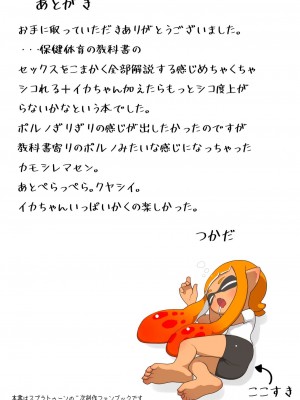 あとがき
お手に取っていただきありがとうございました。
・・・保健体育の教科書の
セックスをこまかく全部解説する感じめちゃくちゃ
シコれる＋イカちゃん加えたらもっとシコ度上が
らないかなという本でした。
ポルノぎりぎりの感じが出したかったのですが
教科書寄りのポルノみたいな感じになっちゃった
カモシレマセン。
あとぺらっぺら。クヤシイ。
イカちゃんいっぱいかくの楽しかった。
つかだ
ここすき
本書はスプラトゥーンの二次創作ファンブックです